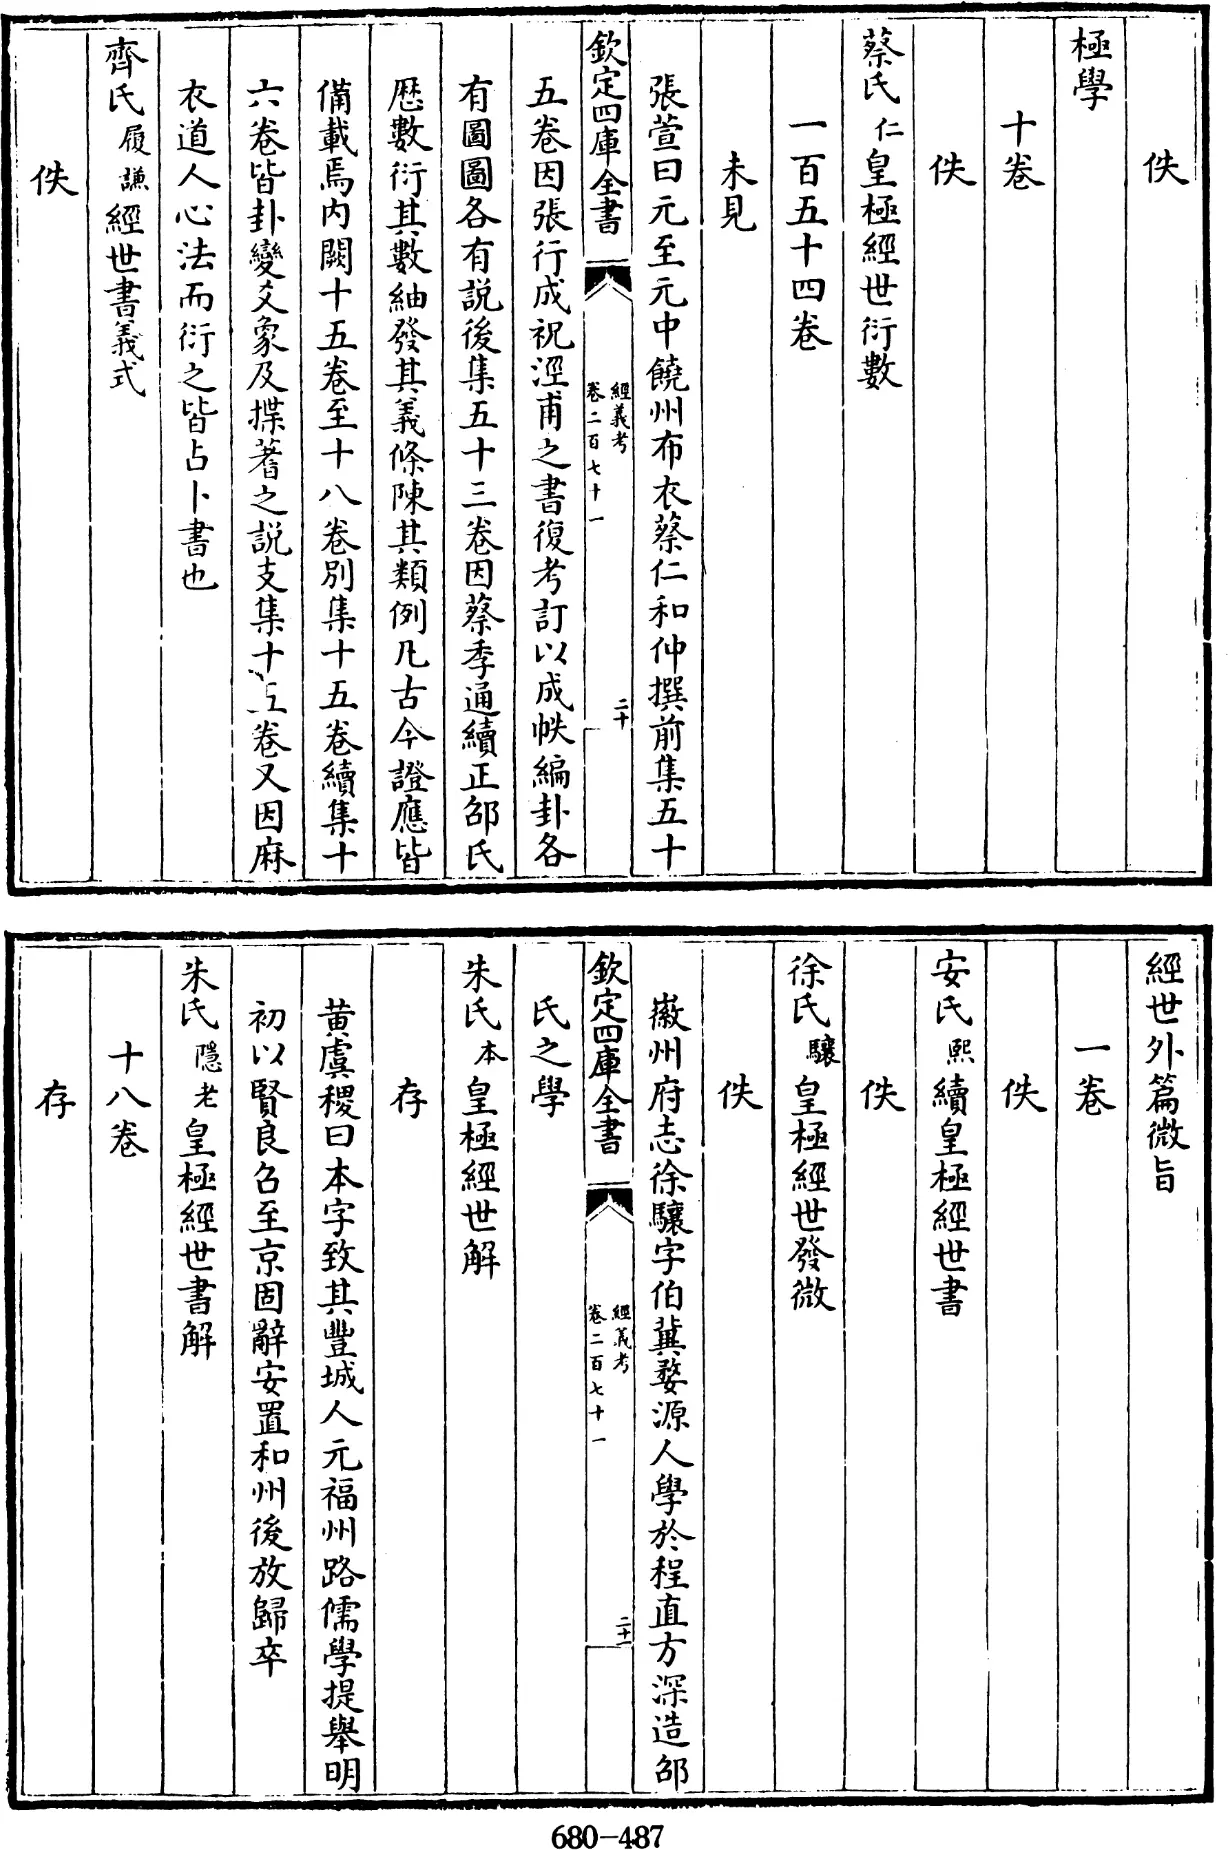 佚
極學
十卷
佚
蔡氏仁皇極經世衍數
一百五十四卷
未見
張萱曰元至元中饒州布衣蔡仁和仲撰前集五十
欽定四庫全書
經義考
卷二百七十一
二十
五卷因張行成祝涇甫之書復考訂以成帙編卦各
有圖圖各有説後集五十三卷因蔡季通續正邵氏
歴數衍其數紬發其義條陳其類例凡古今證應皆
備載焉内闕十五卷至十八卷别集十五卷續集十
六卷皆卦變爻象及揲蓍之説支集十五卷又因麻
衣道人心法而衍之皆占卜書也
齊氏履謙經世書義式
佚
經世外篇微旨
一卷
佚
安氏熙續皇極經世書
佚
徐氏驤皇極經世發微
佚
徽州府志徐驤字伯冀婺源人學於程直方深造邵
欽定四庫全書
經義考
卷二百七十一
二十一
氏之學
朱氏本皇極經世解
存
黄虞稷曰本字致其豐城人元福州路儒學提舉明
初以賢良召至京固辭安置和州後放歸卒
朱氏隱老皇極經世書解
十八卷
存
680-487